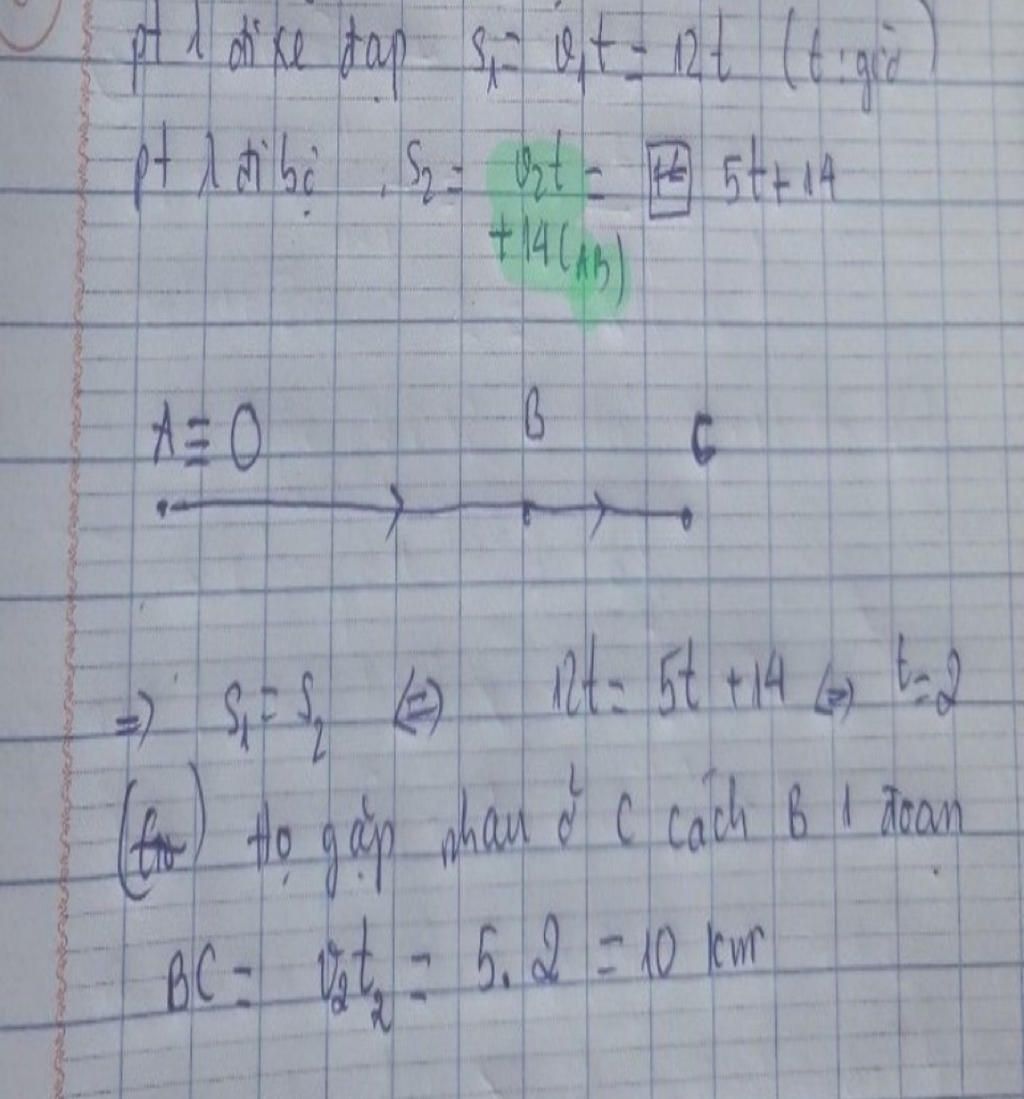 pt 1 đi xe đạp S₁ = v₁t = 12t (t: giờ)
pt 1 đi bộ . S₂ = v₂t = 5t + 14
+ 14 (AB)
A ≡ O B C
=> S₁ = S₂ <=> 12t = 5t + 14 <=> t = 2
Họ gặp nhau ở C cách B 1 đoạn
BC = v₂t₂ = 5. 2 = 10 km